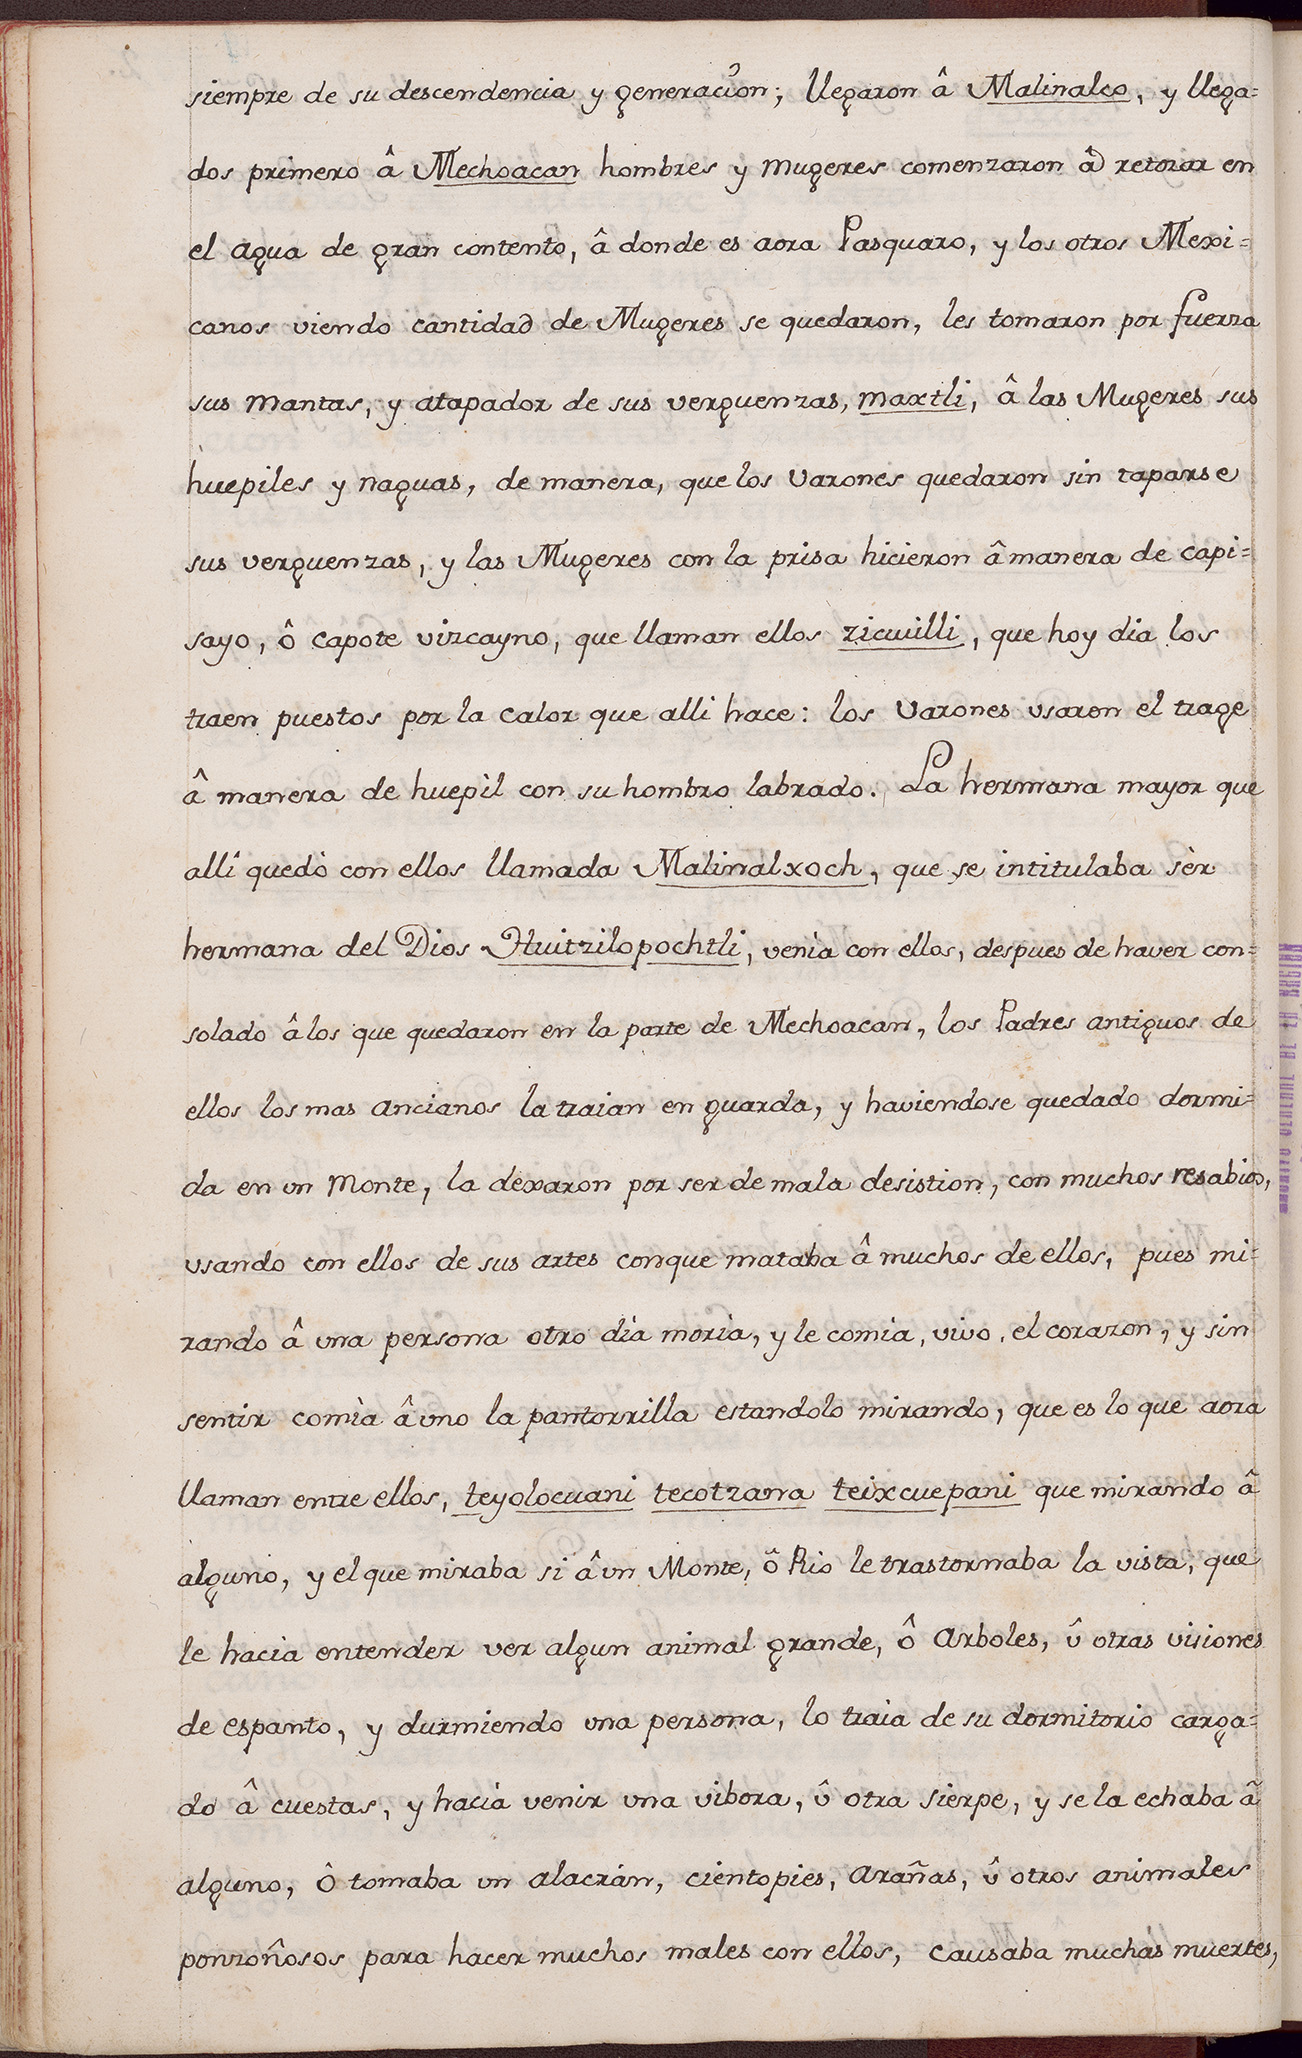 siempre de su descendencia y generacîon; llegaron â Malinalco, y llega=
dos primero â Mechoacan hombres y mugeres comenzaron â retozar en
el agua de gran contento, â donde es aora Pasquaro, y los otros Mexi=
canos viendo cantidad de Mugeres se quedaron, les tomaron por fuerza
sus mantas, y atapador de sus verguenzas, maxtli, â las Mugeres sus
huepiles y naguas, de manera, que los Varones quedaron sin taparse
sus verguenzas, y las Mugeres con la prisa hicieron â manera de capi=
sayo, ô capote vizcayno, que llaman ellos zicuilli, que hoy dia los
traen puestos por la calor que alli hace: los Varones usaron el trage
â manera de huepil con su hombro labrado. La hermana mayor que
allî quedò con ellos llamada Malinalxoch, que se intitulaba sèr
hermana del Dios Huitzilopochtli, venìa con ellos, despues de haver con=
solado â los que quedaron en la parte de Mechoacan, los Padres antiguos de
ellos los mas ancianos la traian en guarda, y haviendose quedado dormi=
da en un Monte, la dexaron por ser de mala desistion, con muchos resabios,
usando con ellos de sus artes conque mataba â muchos de ellos, pues mi=
rando â una persona otro dia moria, y le comia, vivo, el corazon, y sin
sentir comìa â uno la pantorrilla estandolo mirando, que es lo que aora
llaman entre ellos, teyolocuani tecotzana teixcuepani que mirando â
alguno, y el que miraba si â un Monte, ô Rio le trastornaba la vista, que
le hacia entender ver algun animal grande, ô Arboles, û otras visiones
de espanto, y durmiendo una persona, lo traia de su dormitorio carga=
do â cuestas, y hacia venir una vibora, û otra sierpe, y se la echaba â
alguno, ô tomaba un alacrán, cientopies, Arañas, û otros animales
ponzoñosos para hacer muchos males con ellos, causaba muchas muertes,